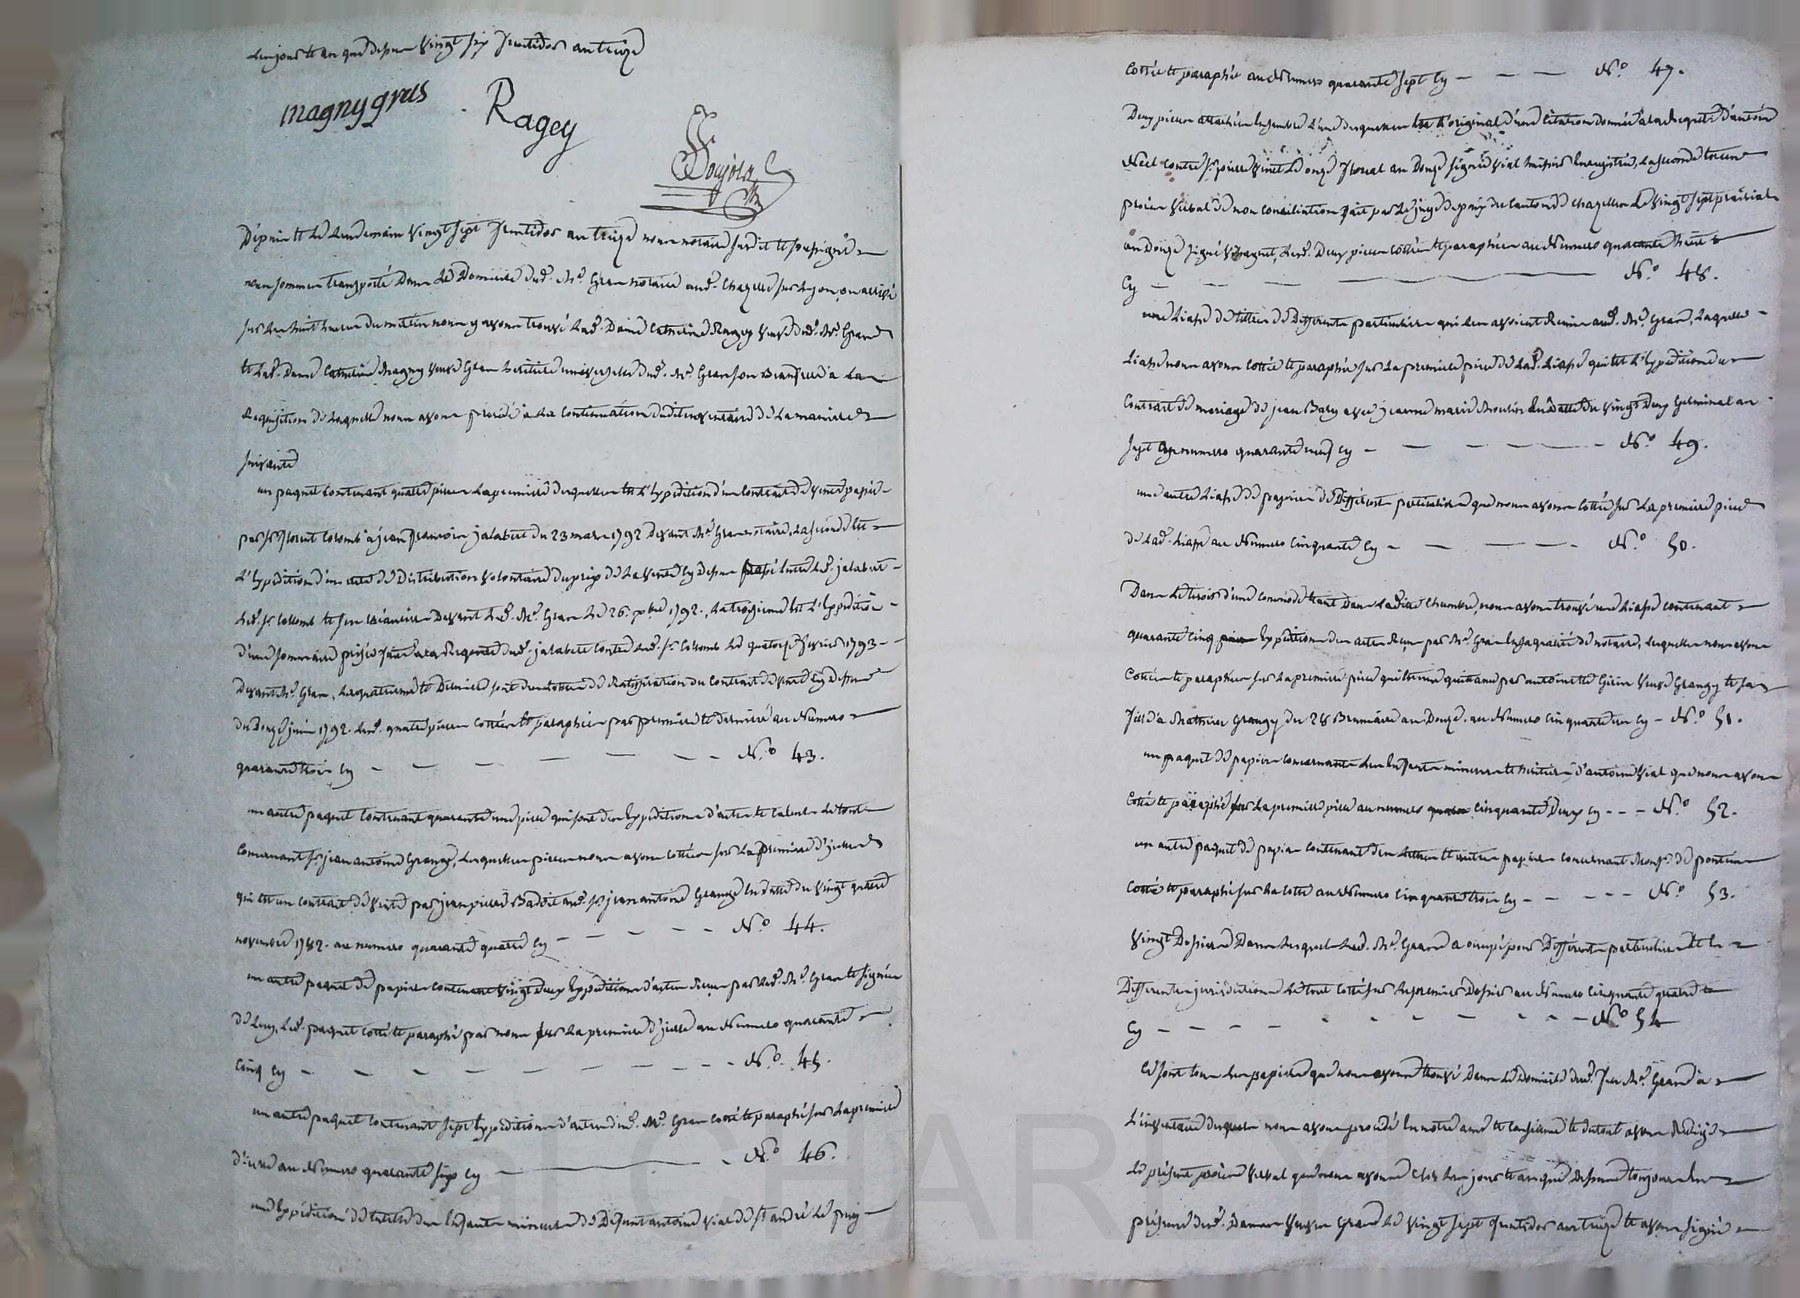 Les jour et an que dessus vingt six fructidor an treize
magny gras
Ragey
Depuis et le lendemain vingt sept fructidor an treize nous notaire susdit et soussigné
nous sommes transporté dans le domicile dud. Me. Gras notaire aud. Chazelles sur Lyon ou arrivé
sur les huit heures du matin nous y avons trouvé lad. Dame Catherine Ragey veuve dud. Me. Gras
et lad. Dame Catherine Magny veuve Gras héritière universelle dud. Me. Gras son beaufrère à la
Requisition de laquelle nous avons procédé à la continuation dudit inventaire de la manière
suivante
un paquet contenant quatre pièces la première desquelles est l'Expédition d'un contrat de vente passé
par Sr. Colomb à jean françois jalabert du 23 mars 1792 devant Me. Gras notaire, la seconde est
L'Expédition d'un acte de Distribution volontaire du prix de la vente cy dessus passé entre led. jalabert
led. Sr. Colomb et ses créanciers devant led. Me. Gras le 26. xbre 1792, la troisième est l'Expédition
d'une sommaire prisée faite à la Requête dud. jalabert contre led. Sr. Colomb le quatorze février 1793
devant Me. Gras, la quatrième et dernière sont des lettres de Ratification du contrat de vente cy dessus
du Douze juin 1792. lesd. quatre pièces cottées et paraphées par première et dernière au Numero
quarante trois cy - - - - - - No. 43.
un autre paquet contenant quarante une pièces qui sont des Expéditions d'actes et autres le tout
concernant Sr. jean antoine Grange, lesquelles pièces nous avons cottées sur la première d'icelles
qui est un contrat de vente par jean pierre Badoit aud. Sr. jean antoine Grange en datte du vingt quatre
novembre 1782. au numero quarante quatre cy - - - - - No. 44.
un autre paquet de papiers contenant vingt deux Expéditions d'actes Reçus par led. Me. Gras et signées
de luy, led. paquet cotté et paraphé par nous sur la première d'icelles au Numero quarante
Cinq cy - - - - - - - No. 45.
un autre paquet contenant sept Expéditions d'actes dud. Me. Gras cotté et paraphé sur la première
d'icelles au Numero quarante six cy - No. 46.
une Expédition de tutelle des Enfants mineurs de Defunt antoine Vial de St. andré le puy
Cottée et paraphée au Numero quarante sept cy - - - No. 47.
Deux pièces attachées Ensemble l'une desquelles est l'original d'une Citation donnée à la Requête d'antoine
Néel contre Sr. pierre Vinet le onze floreal an Douze signé Vial huissier Enregistré, la seconde est un
procès verbal de non conciliation fait par le juge de paix du canton de chazelles le vingt sept prairial
an Douze signé, lesd. Deux pièces cottées et paraphées au Numero quarante huit
Cy - - - No. 48.
une Liasse de titres de Differents particuliers qui les avoient Remis aud. Me. Gras, laquelle
Liasse nous avons cottée et paraphée sur la première pièce de lad. Liasse qui est l'Expédition du
Contrat de mariage de jean Baty avec jeanne marie Moulin en Datte du vingt Deux Germinal an
sept au numero quarante neuf cy - - - - - No. 49.
une autre Liasse de papiers de Différents particuliers que nous avons cottée sur la première pièce
de lad. Liasse au Numero Cinquante cy - - - - No. 50.
Dans le tiroir d'une commode étant Dans ladite Chambre, nous avons trouvé une Liasse contenant
quarante Cinq Expéditions des actes Reçus par Me. Gras En sa qualité de notaire, lesquelles nous avons
Cottées et paraphées sur la première pièce qui est une quittance par antoinette Girin veuve Grangy et sa
fille à Mathieu Grangy du 28 Brumaire an Douze. au Numero Cinquante un cy - No. 51.
un paquet de papiers concernants les Enfants mineurs et héritiers d'antoine Vial que nous avons
Cotté et paraphé sur la première pièce au numero cinquante Deux cy - - - No. 52.
un autre paquet de papiers contenant des Lettres et autres papiers concernant Monsr. de pontin
Cotté et paraphé sur la cotte au Numero Cinquante trois cy - - - - - No. 53.
Vingt Dossiers Dans lesquels led. Me. Gras a occupé pour Differents particuliers et en
Differentes jurisdictions le tout cotté sur le premier Dossier au Numero Cinquante quatre
Cy - - - - - - - - No. 54
Ce sont tous les papiers que nous avons trouvé Dans le Domicile dud. feu Me. Gras à
L'inventaire desquels nous avons procédé En notre ame et conscience et du tout avons Redigé
Le présent procès verbal que nous avons Clos Les jour et an que dessus toujours En
présence desd. Dames veuves Gras le vingt sept fructidor an treize et avons signé